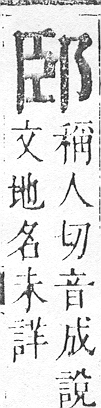 稱人切音成說
文地名未詳